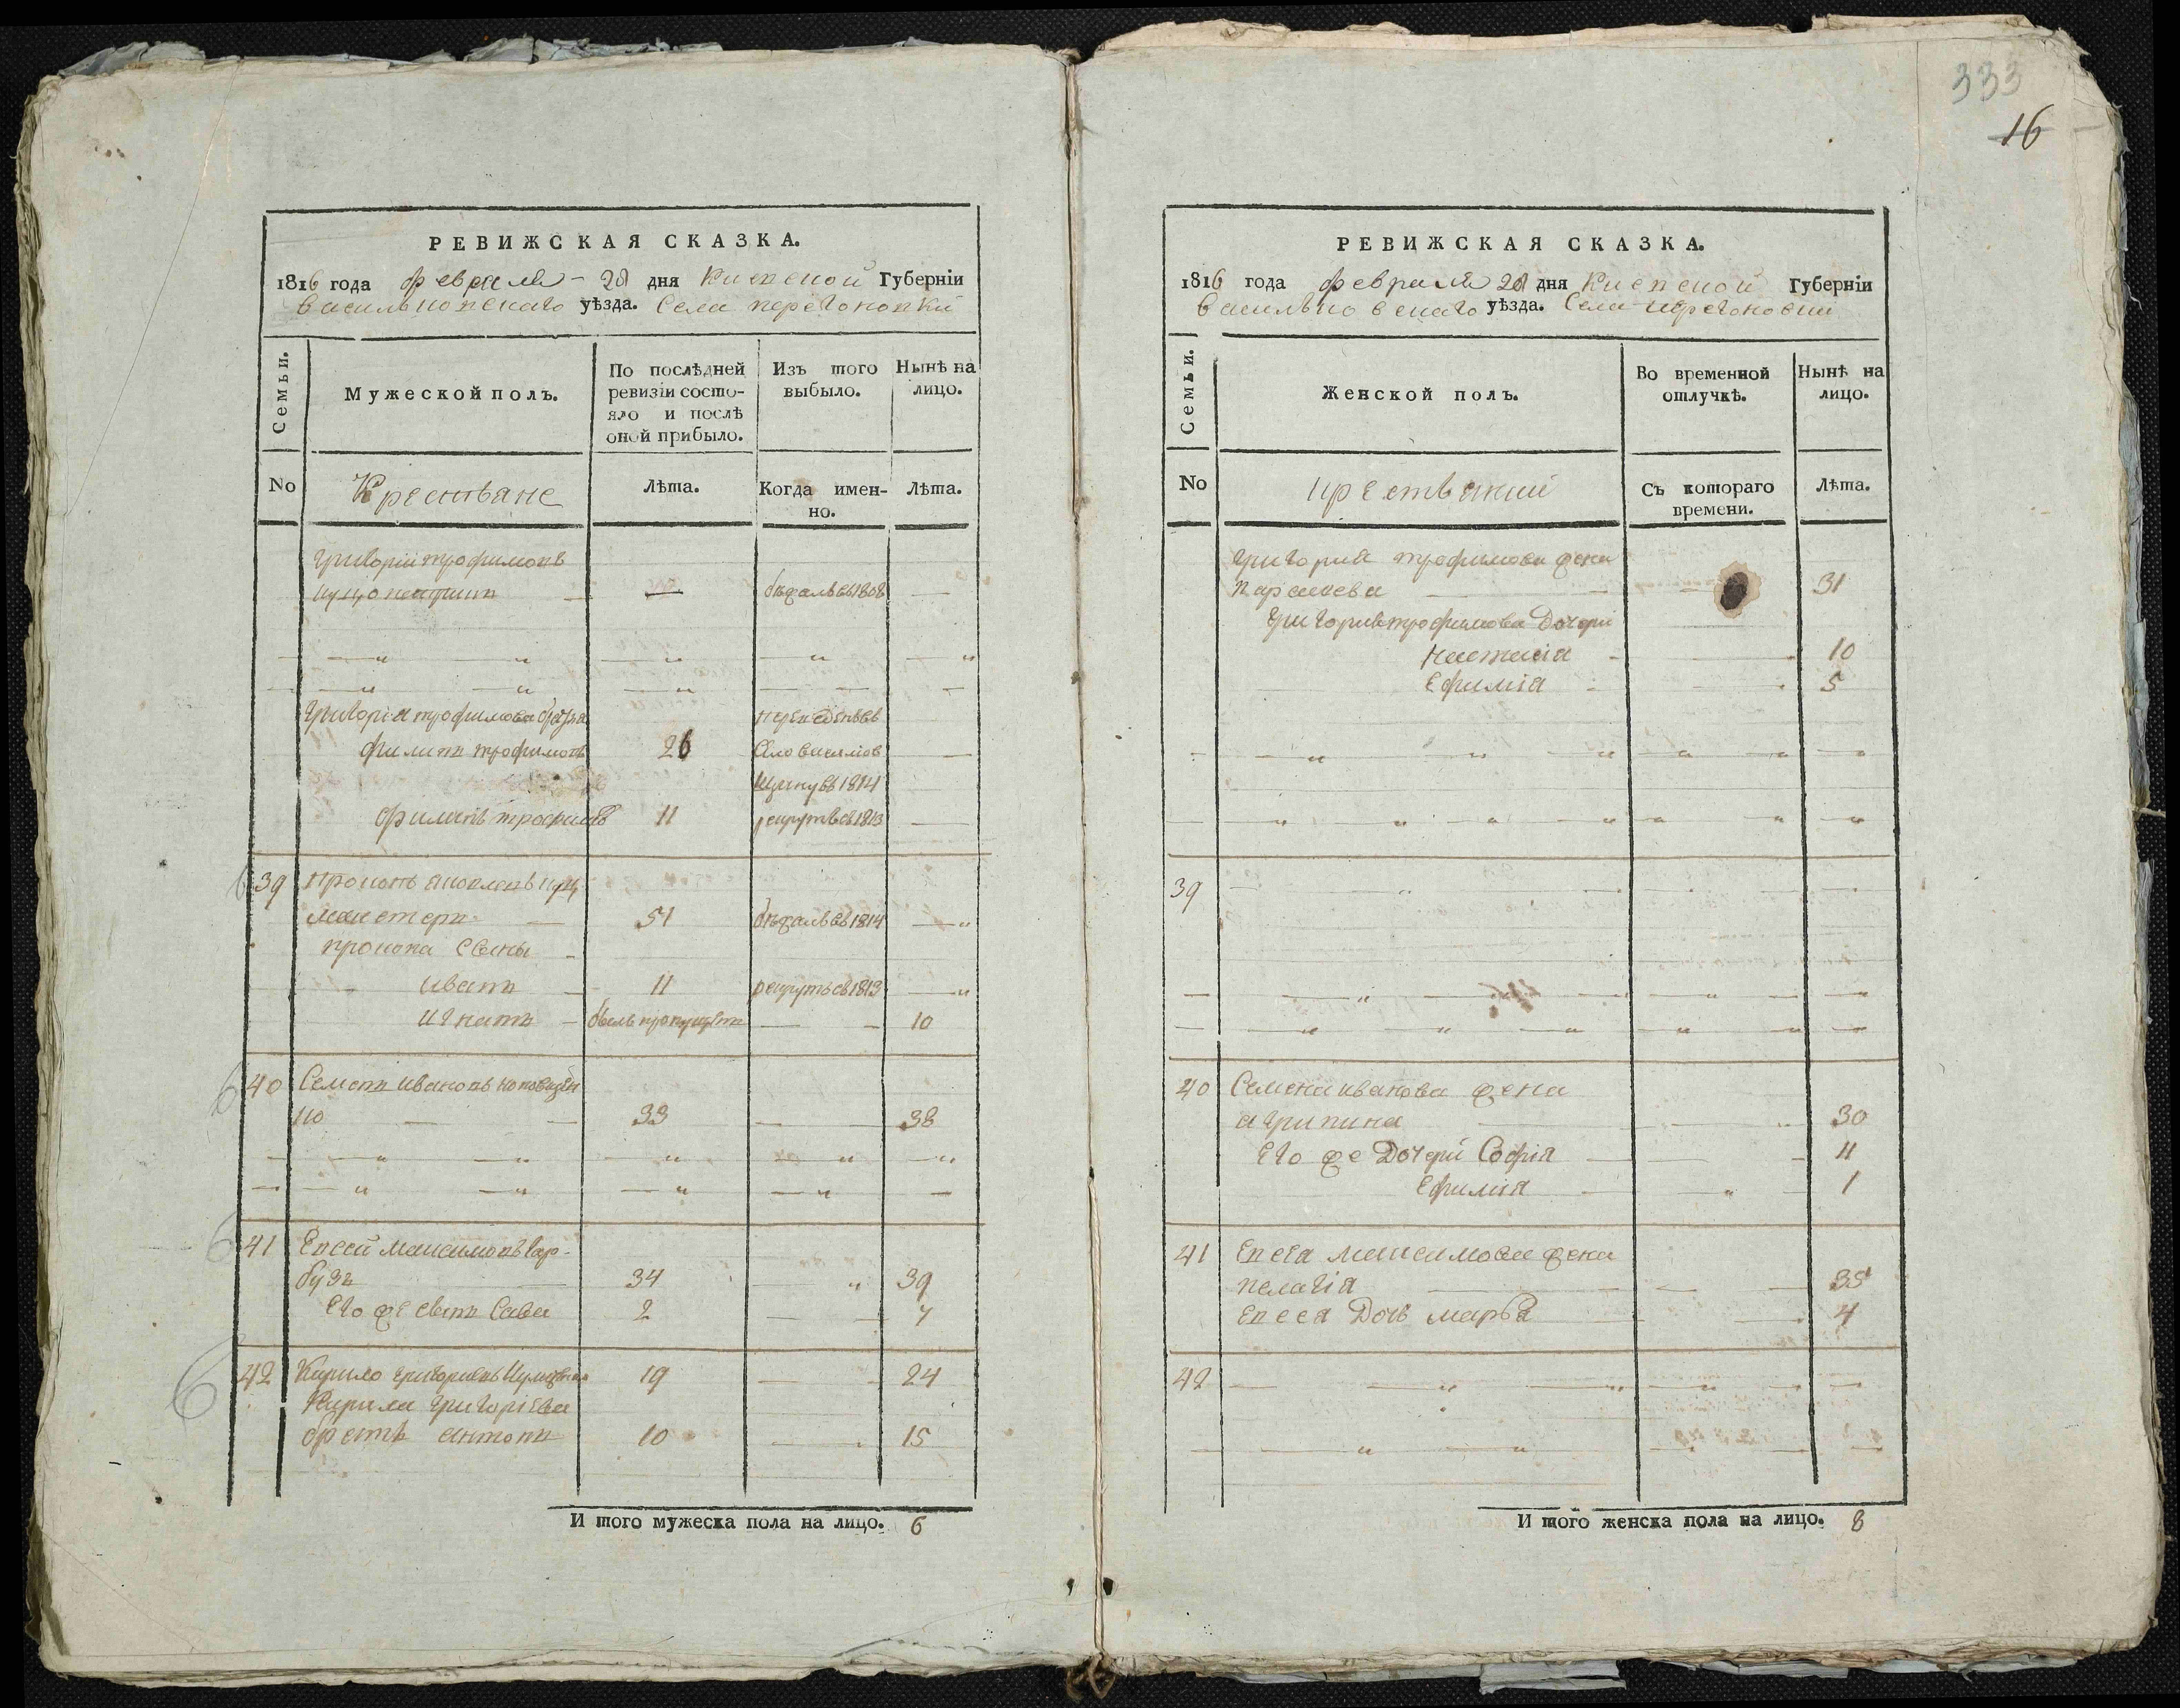 333
16
РЕВИЖСКАЯ СКАЗКА.
1816 года февраля 28 дня Киевской Губерніи
васильковскаго уѣзда. Села перегоновки
Семьи.
Мужеской полъ.
По послѣдней ревизіи состо-яло и послѣ оной прибыло.
Изъ того выбыло.
Нынѣ на лицо.
No
Крестьяне
Лѣта.
Когда имен-но.
Лѣта.
григорій трофимовъ
бѣжалъ въ 1808
григорія трофимова братья
переведенъ въ
филипъ трофимовъ 26 село
въ 1814
трофимовъ 11 рекрутъ въ 1813
39 прокопъ яковлевъ
51 бѣжалъ въ 1814
прокопа сыны
иванъ 11 рекрутъ въ 1813
игнатъ былъ пропущенъ 10
40 Семенъ ивановъ
33 38
41 Евсей максимовъ гар-
бузъ 34 39
Его же сынъ Сава 2 7
42 Кирило григориевъ 19 24
Кирила григоріева
братъ антонъ 10 15
И того мужеска пола на лицо. 6
РЕВИЖСКАЯ СКАЗКА.
1816 года февраля 28 дня Киевской Губерніи
васильковскаго уѣзда. Села перегоновки
Семьи.
Женской полъ.
Во временной отлучкѣ.
Нынѣ на лицо.
No
крестьянки
Съ котораго времени.
Лѣта.
григорія трофимова жена
параскева 31
григория трофимова Дочери
настасія 10
Ефимія 5
39
40 Семена иванова жена
агрипина 30
Его же Дочери Софія 11
Ефимія 1
41 Евсея максимова жена
пелагія 35
Евсея Дочь марья 4
42
И того женска пола на лицо. 8